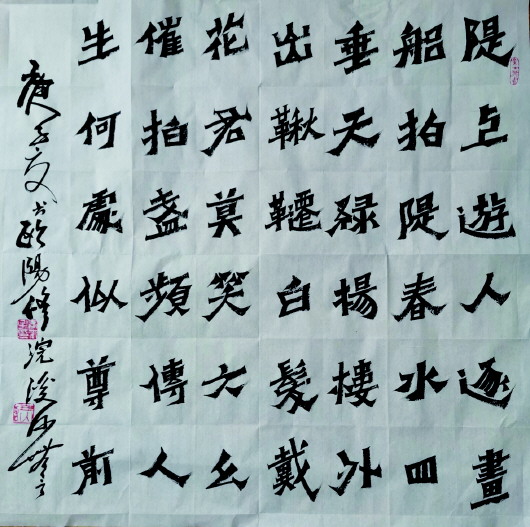 隄上遊人逐畫
船拍隄春水四
垂天綠楊樓外
出鞦韆白髮戴
花君莫笑六幺
催拍盞頻傳人
生何處似尊前
庚子夏书歐陽修浣溪沙